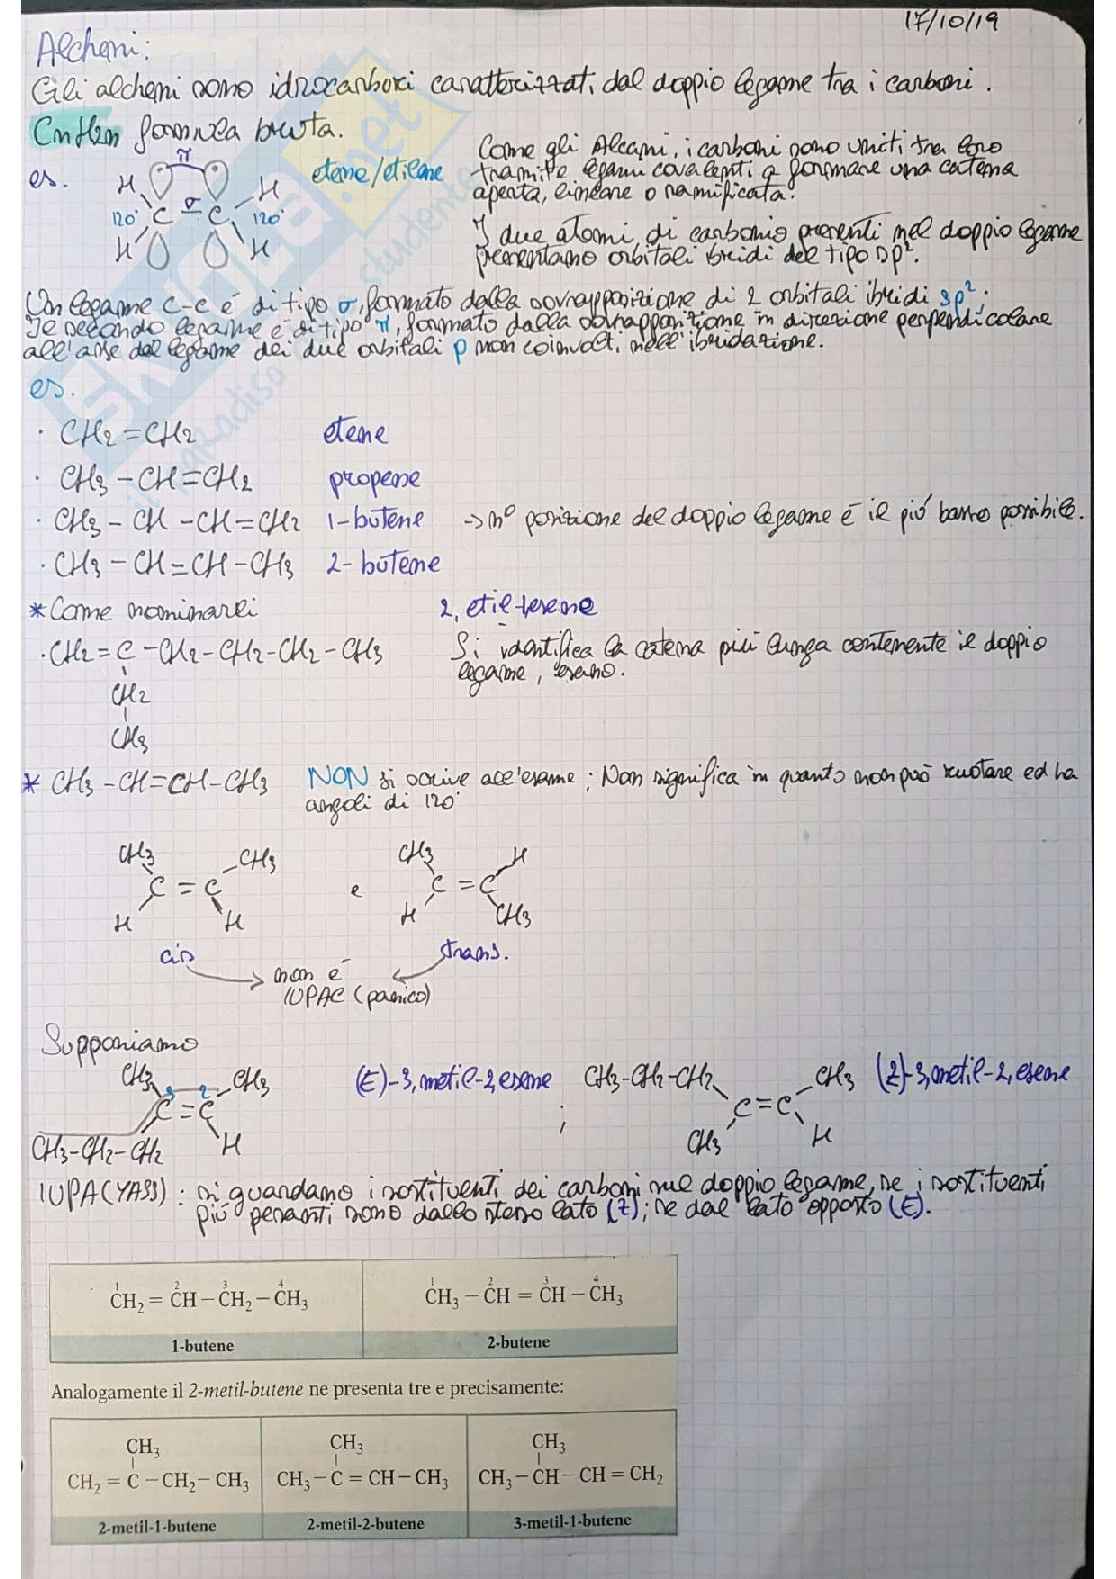 17/10/19
Alcheni:
Gli alcheni sono idrocarburi caratterizzati dal doppio legame tra i carboni.
CnH2n formula bruta.
es.
π
H
H
etene/etilene
120°
C
σ
C
120°
H
H
Come gli Alcani, i carboni sono uniti tra loro
tramite legami covalenti a formare una catena
aperta, lineare o ramificata.
I due atomi di carbonio presenti nel doppio legame
presentano orbitali ibridi del tipo sp².
Un legame C-C è di tipo σ, formato dalla sovrapposizione di 2 orbitali ibridi sp²;
Il secondo legame è di tipo π, formato dalla sovrapposizione in direzione perpendicolare
all'asse del legame dei due orbitali p non coinvolti nell'ibridazione.
es.
· CH2=CH2 etene
· CH3-CH=CH2 propene
· CH3-CH-CH=CH2 1-butene -> n° posizione del doppio legame è il più basso possibile.
· CH3-CH=CH-CH3 2-butene
* Come nominarli 2, etil-1esene
· CH2=C-CH2-CH2-CH2-CH3
Si identifica la catena più lunga contenente il doppio
legame, esano.
CH2
CH3
* CH3-CH=CH-CH3 NON si scrive all'esame; Non significa in quanto non può ruotare ed ha
angoli di 120°
CH3 CH3 CH3 H
C=C e C=C
H H H CH3
cis trans.
non è
IUPAC (panico)
Supponiamo
CH3 3 2 CH3 (E)-3,metil-2,esene CH3-CH2-CH2 CH3 (Z)-3,metil-2,esene
C=C ; C=C
CH3-CH2-CH2 H CH3 H
IUPA(YASS): si guardano i sostituenti dei carboni nel doppio legame, se i sostituenti
più pesanti sono dallo stesso lato (Z); se dal lato opposto (E).
1 2 3 4 1 2 3 4
CH2 = CH – CH2 – CH3 CH3 – CH = CH – CH3
1-butene 2-butene
Analogamente il 2-metil-butene ne presenta tre e precisamente:
CH3 CH3 CH3
CH2 = C – CH2 – CH3 CH3 – C = CH – CH3 CH3 – CH CH = CH2
2-metil-1-butene 2-metil-2-butene 3-metil-1-butene